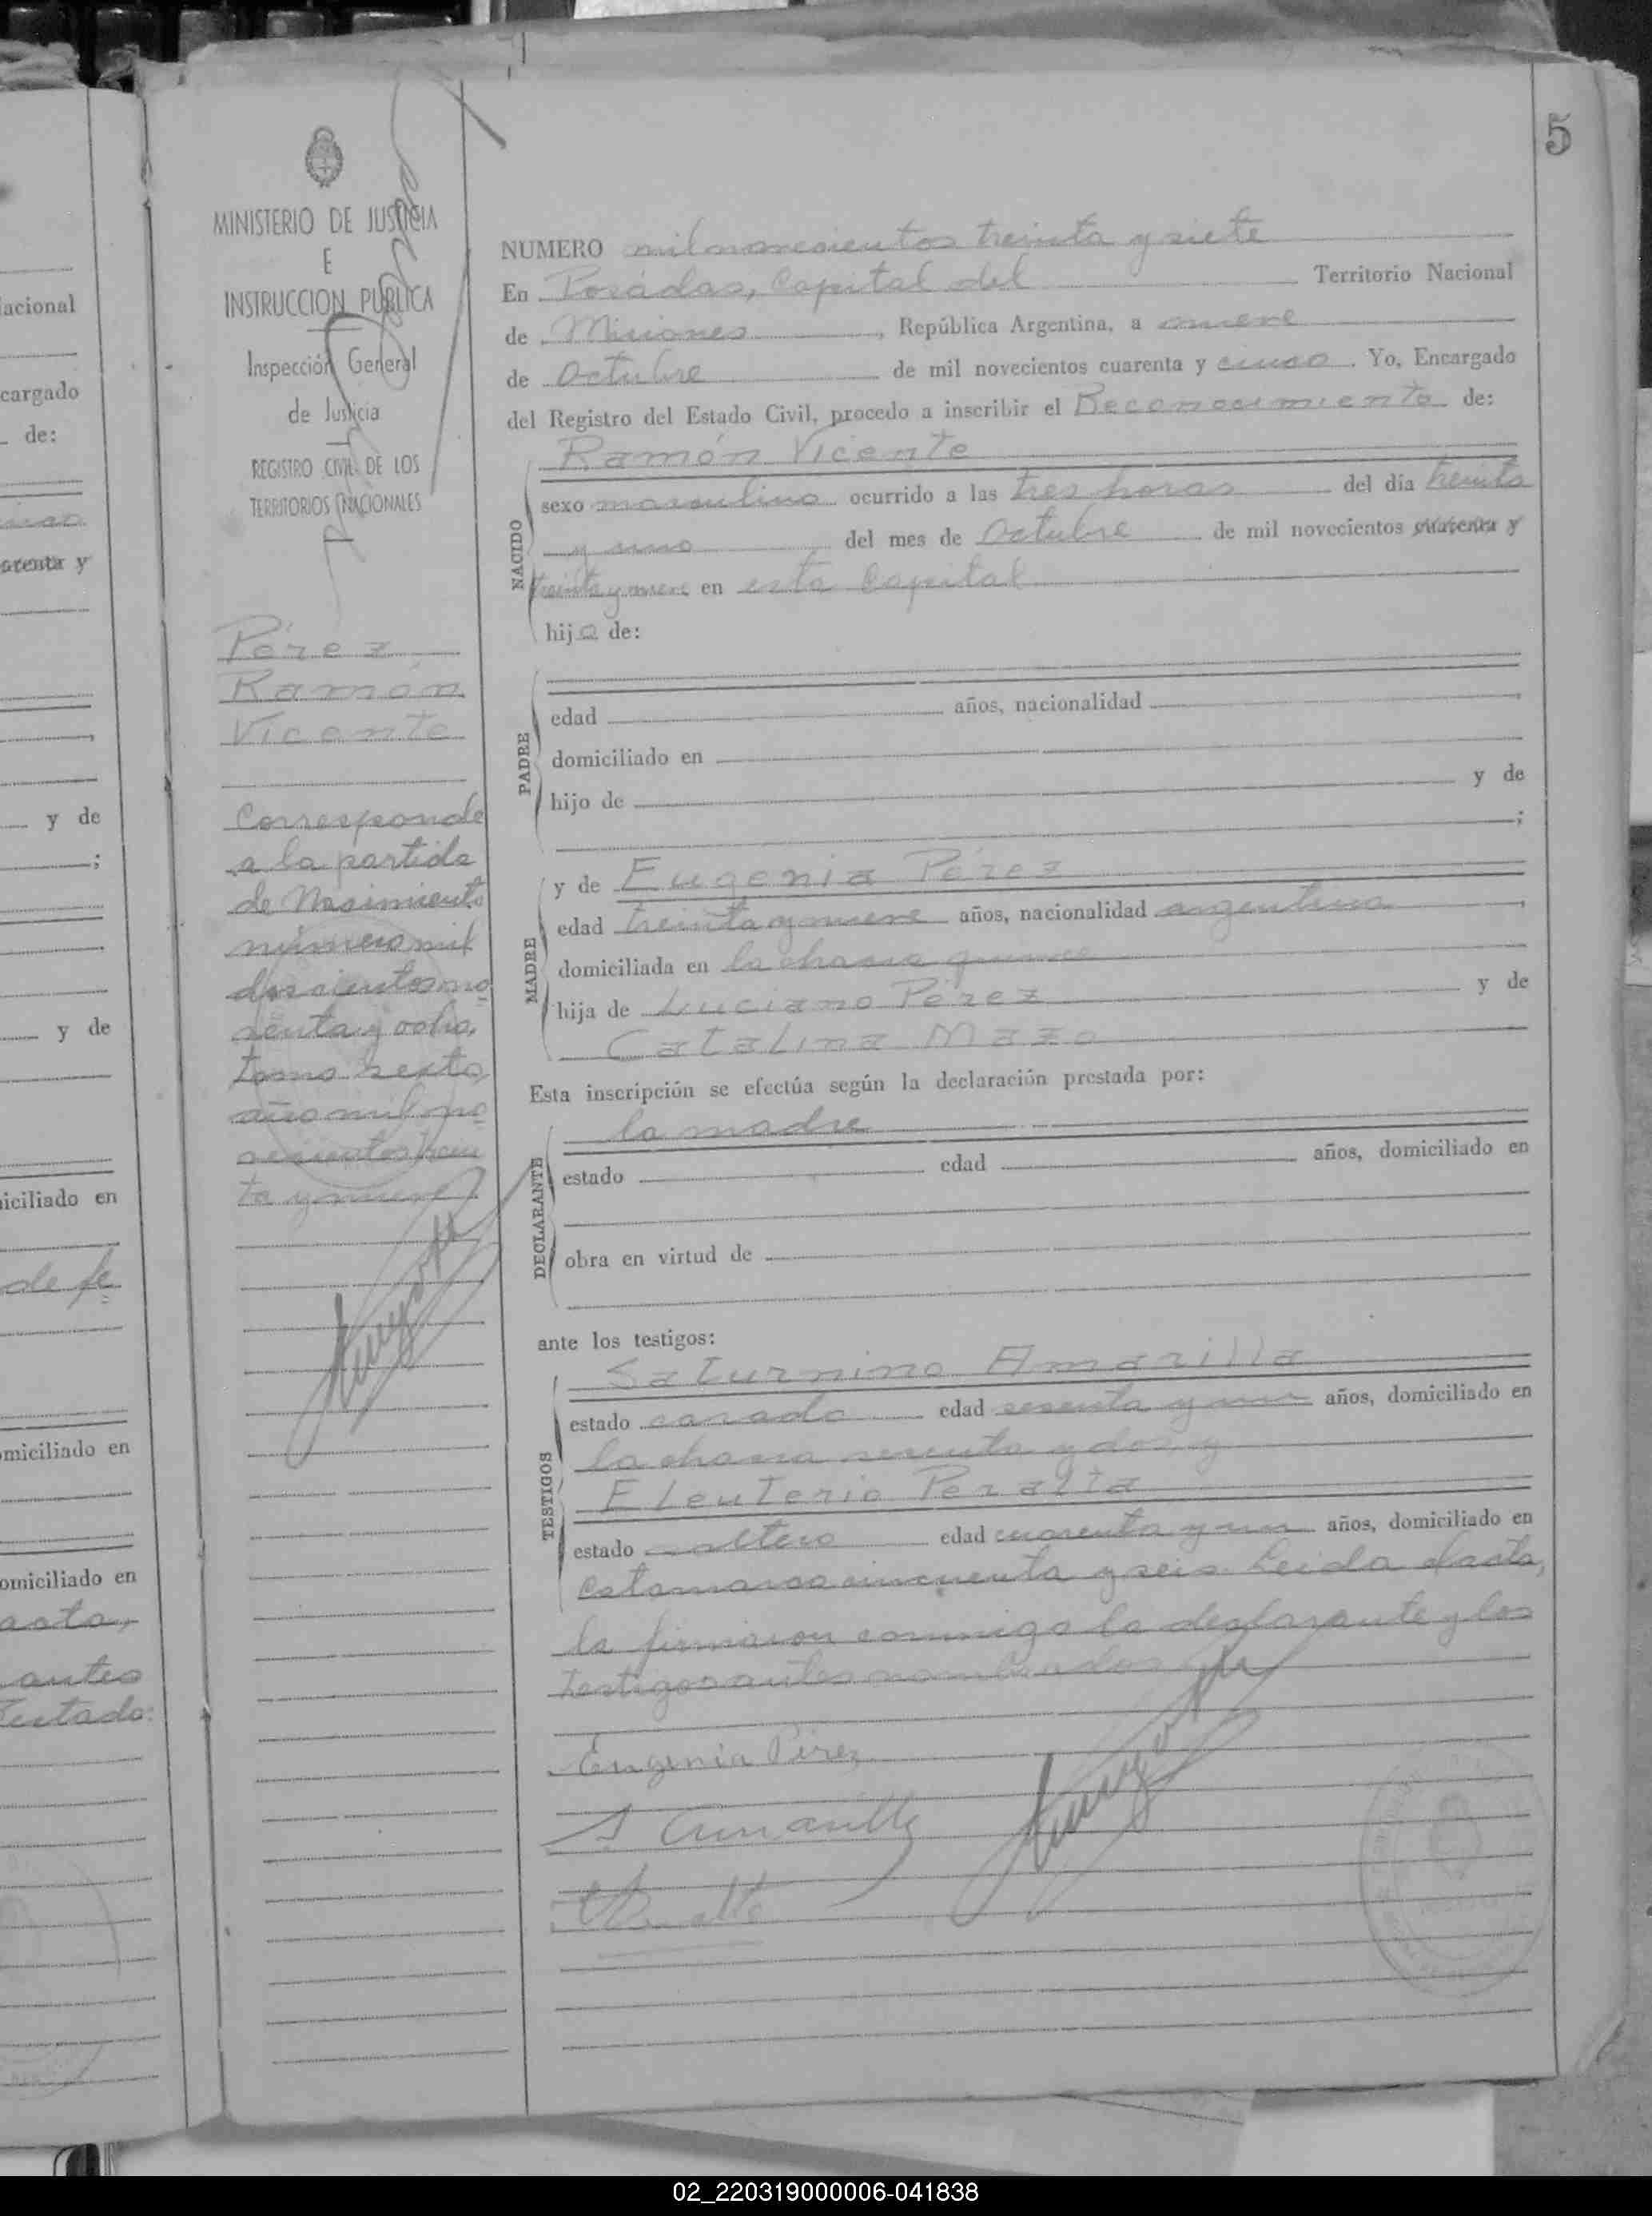 acional
cargado
de:
y
y de
;
y de
iciliado en
de fe
miciliado en
omiciliado en
acta,
antes
Testado:
5
MINISTERIO DE JUSTICIA
E
INSTRUCCION PUBLICA
Inspección General
de Justicia
REGISTRO CIVIL DE LOS
TERRITORIOS NACIONALES
Pérez
Ramón
Vicente
Corresponde
a la partida
de Nacimiento
número mil
doscientos no
venta y ocho,
tomo sexto,
año mil no
vecientos trein
ta y nueve
NUMERO mil novecientos treinta y siete
En Posadas, Capital del Territorio Nacional
de Misiones, República Argentina, a nueve
de Octubre de mil novecientos cuarenta y cinco. Yo, Encargado
del Registro del Estado Civil, procedo a inscribir el Reconocimiento de:
NACIDO
Ramón Vicente
sexo masculino ocurrido a las tres horas del día treinta
y uno del mes de Octubre de mil novecientos cuarenta y
treinta y nueve en esta Capital
hijo de:
PADRE
edad años, nacionalidad
domiciliado en
hijo de y de
;
MADRE
y de Eugenia Pérez
edad treinta y nueve años, nacionalidad argentina,
domiciliada en la chacra quince
hija de Luciano Pérez y de
Catalina Mazo
Esta inscripción se efectúa según la declaración prestada por:
DECLARANTE
la madre
estado edad años, domiciliado en
obra en virtud de
ante los testigos:
TESTIGOS
Saturnino Amarilla
estado casado edad sesenta y un años, domiciliado en
la chacra sesenta y dos y
Eleuterio Peralta
estado soltero edad cuarenta y un años, domiciliado en
Catamarca cincuenta y seis. Leida el acta,
la firmaron conmigo la declarante y los
testigos antes nombrados
Eugenia Pérez
S. Amarilla
02_220319000006-041838